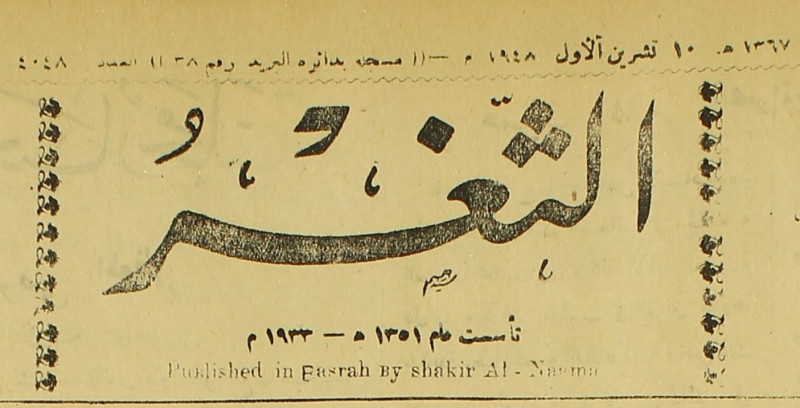 ١٣٦٧ هـ ١٠ تشرين الأول ١٩٤٨ م —(( مسجله بدائره البريد رقم ٣٨ )) العدد ٤٠٤٨
الثَّغْرُ
تأسست عام ١٣٥١ ه — ١٩٣٣ م
Published in Basrah By shakir Al - Naama